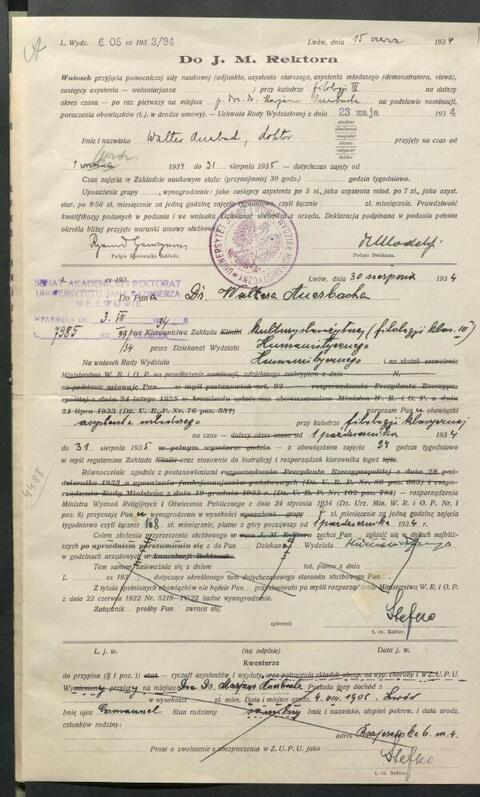 L. Wydz. 605 ex 1933/34 Lwów, dnia 15 czerwca 1934
Do J. M. Rektora
Wniosek przyjęcia pomocniczej siły naukowej (adjunkta, asystenta starszego, asystenta młodszego (demonstratora, elewa),
zastępcy asystenta — wolontarjusza przy katedrze filologji III na dalszy
okres czasu — po raz pierwszy na miejsce p. Dra na podstawie nominacji,
poruczenia obowiązków (t. j. w drodze umowy). — Uchwała Rady Wydziałowej z 23 maja 1934
studenci
magister
lekarz
inżynier
doktor
Imię i nazwisko Walter Auerbach, doktor przyjęty na czas od
1934 do 31 sierpnia 1935 — dotychczas zajęty od
Czas zajęcia w Zakładzie naukowym stale: (przynajmniej 30 godz.) godzin tygodniowo.
Uposażenie grupy , wynagrodzenie: jako zastępcy asystenta po 5 zł., jako asystent młod. po 7 zł., jako asyst.
star. po 8·50 zł. miesięcznie za jedną godzinę zajęcia tygodniowo, czyli łącznie zł. miesięcznie. Prawdziwość
kwalifikacyj podanych w podaniu i we wniosku Dziekanat stwierdza z urzędu. Deklaracja podpisana w podaniu pełenta
określa bliżej warunki umowy służbowej.
Podpis Kierownika Zakładu. Podpis Dziekana.
L. ex 193 Lwów, dnia 30 sierpnia 1934
SENAT AKADEMICKI I REKTORAT
UNIWERSYTETU JANA KAZIMIERZA
WE LWOWIE
Do Pana Dr. Waltera Auerbacha
3. IX 34
7985 przez Kierownictwo Zakładu Kliniki kultury starożytnej (filologji klas. III)
przez Dziekanat Wydziału Humanistycznego
Na wniosek Rady Wydziału Humanistycznego i na skutek zezwolenia
Ministerstwa W. R. i O. P. na przedłużenie nominacji, udzielonego reskryptem z dnia N.
na podstawie mianuję Pan w myśl postanowień art. 93 rozporządzenia Prezydenta Rzeczypo-
spolitej z dnia 24 lutego 1928
21 lipca 1933 (Dz. U. R. P. Nr. 76 poz. 551) poruczam Panu obowiązki
asystenta młodszego przy katedrze filologji klasycznej
na czas — dalszy okres czasu — od 1 października 1934
do 31 sierpnia 1935 w pełnym wymiarze godzin — z obowiązkiem zajęć 24 godzin tygodniowo
w myśl regulaminu Zakładu Kliniki oraz stosownie do instrukcji i rozporządzeń kierownika tegoż tejże.
Równocześnie zgodnie z postanowieniami rozporządzenia Prezydenta Rzeczypospolitej z dnia 28 paź-
dziernika 1933 o uposażeniu funkcjonarjuszów państwowych (Dz. U. R. P. Nr. 86 poz. 663) i rozporzą-
dzenia Rady Ministrów z dnia 19 grudnia 1933 r. (Dz. U. R. P. Nr. 102 poz. 781) — rozporządzenia
Ministra Wyznań Religijnych i Oświecenia Publicznego z dnia 24 stycznia 1934 (Dz. Urz. Min. W. R. i O. P. Nr 1
poz. 8) przyznaję Panu wynagrodzenie w wysokości uposażeni grupy 7 zł. miesięcznie za jedną godzinę zajęcia
tygodniowo czyli łącznie 168 zł. miesięcznie, płatne z góry począwszy od 1 października 1934 r.
Celem złożenia przyrzeczenia służbowego w ręce J. M. Rektora zechce Pan zgłosić się w dniach najbliż-
szych po uprzedniem porozumieniu się z do Pana Dziekana Wydziału Humanistycznego
w godzinach urzędowych w kancelarji Rektoratu.
Tem samem unieważnia się z dniem tut. pismo z dnia
L. ex 193 dotyczące określonego tam dotychczasowego stosunku służbowego Pan
Z tytułu spełnionych obowiązków nie będzie Pan przysługiwało po myśli rozporządzenia Ministerstwa W. R. i O. P.
z dnia 22 czerwca 1922 Nr. 5219—IV/22 żadne wynagrodzenie.
Załącznik prośby Pan zwraca się.
(pieczęć) Stefko
t. cz. Rektor.
L. j. w. (na odwrocie) Data j. w.
Kwesturze
do przypisu (§ 1 poz. 1) etat — ryczałt asystentów i wypłaty, oraz potrącenia składek ubezp. na wyp. choroby i w Z. U. P. U.
Wymieniony przyjęty na miejsce Dra Posiada inny dochód z
w wysokości złot. mies. Data i miejsce urodz. 4. VII. 1905. Lwów
Imię ojca Emanuel Stan rodzinny Imię i nazwisko, stopień pokrew. i data urodz.
członków rodziny: adres 6 m. 4
Prosi o zwolnienie z ubezpieczenia w Z. U. P. U. jako Stefko
t. cz. Rektor.
4488